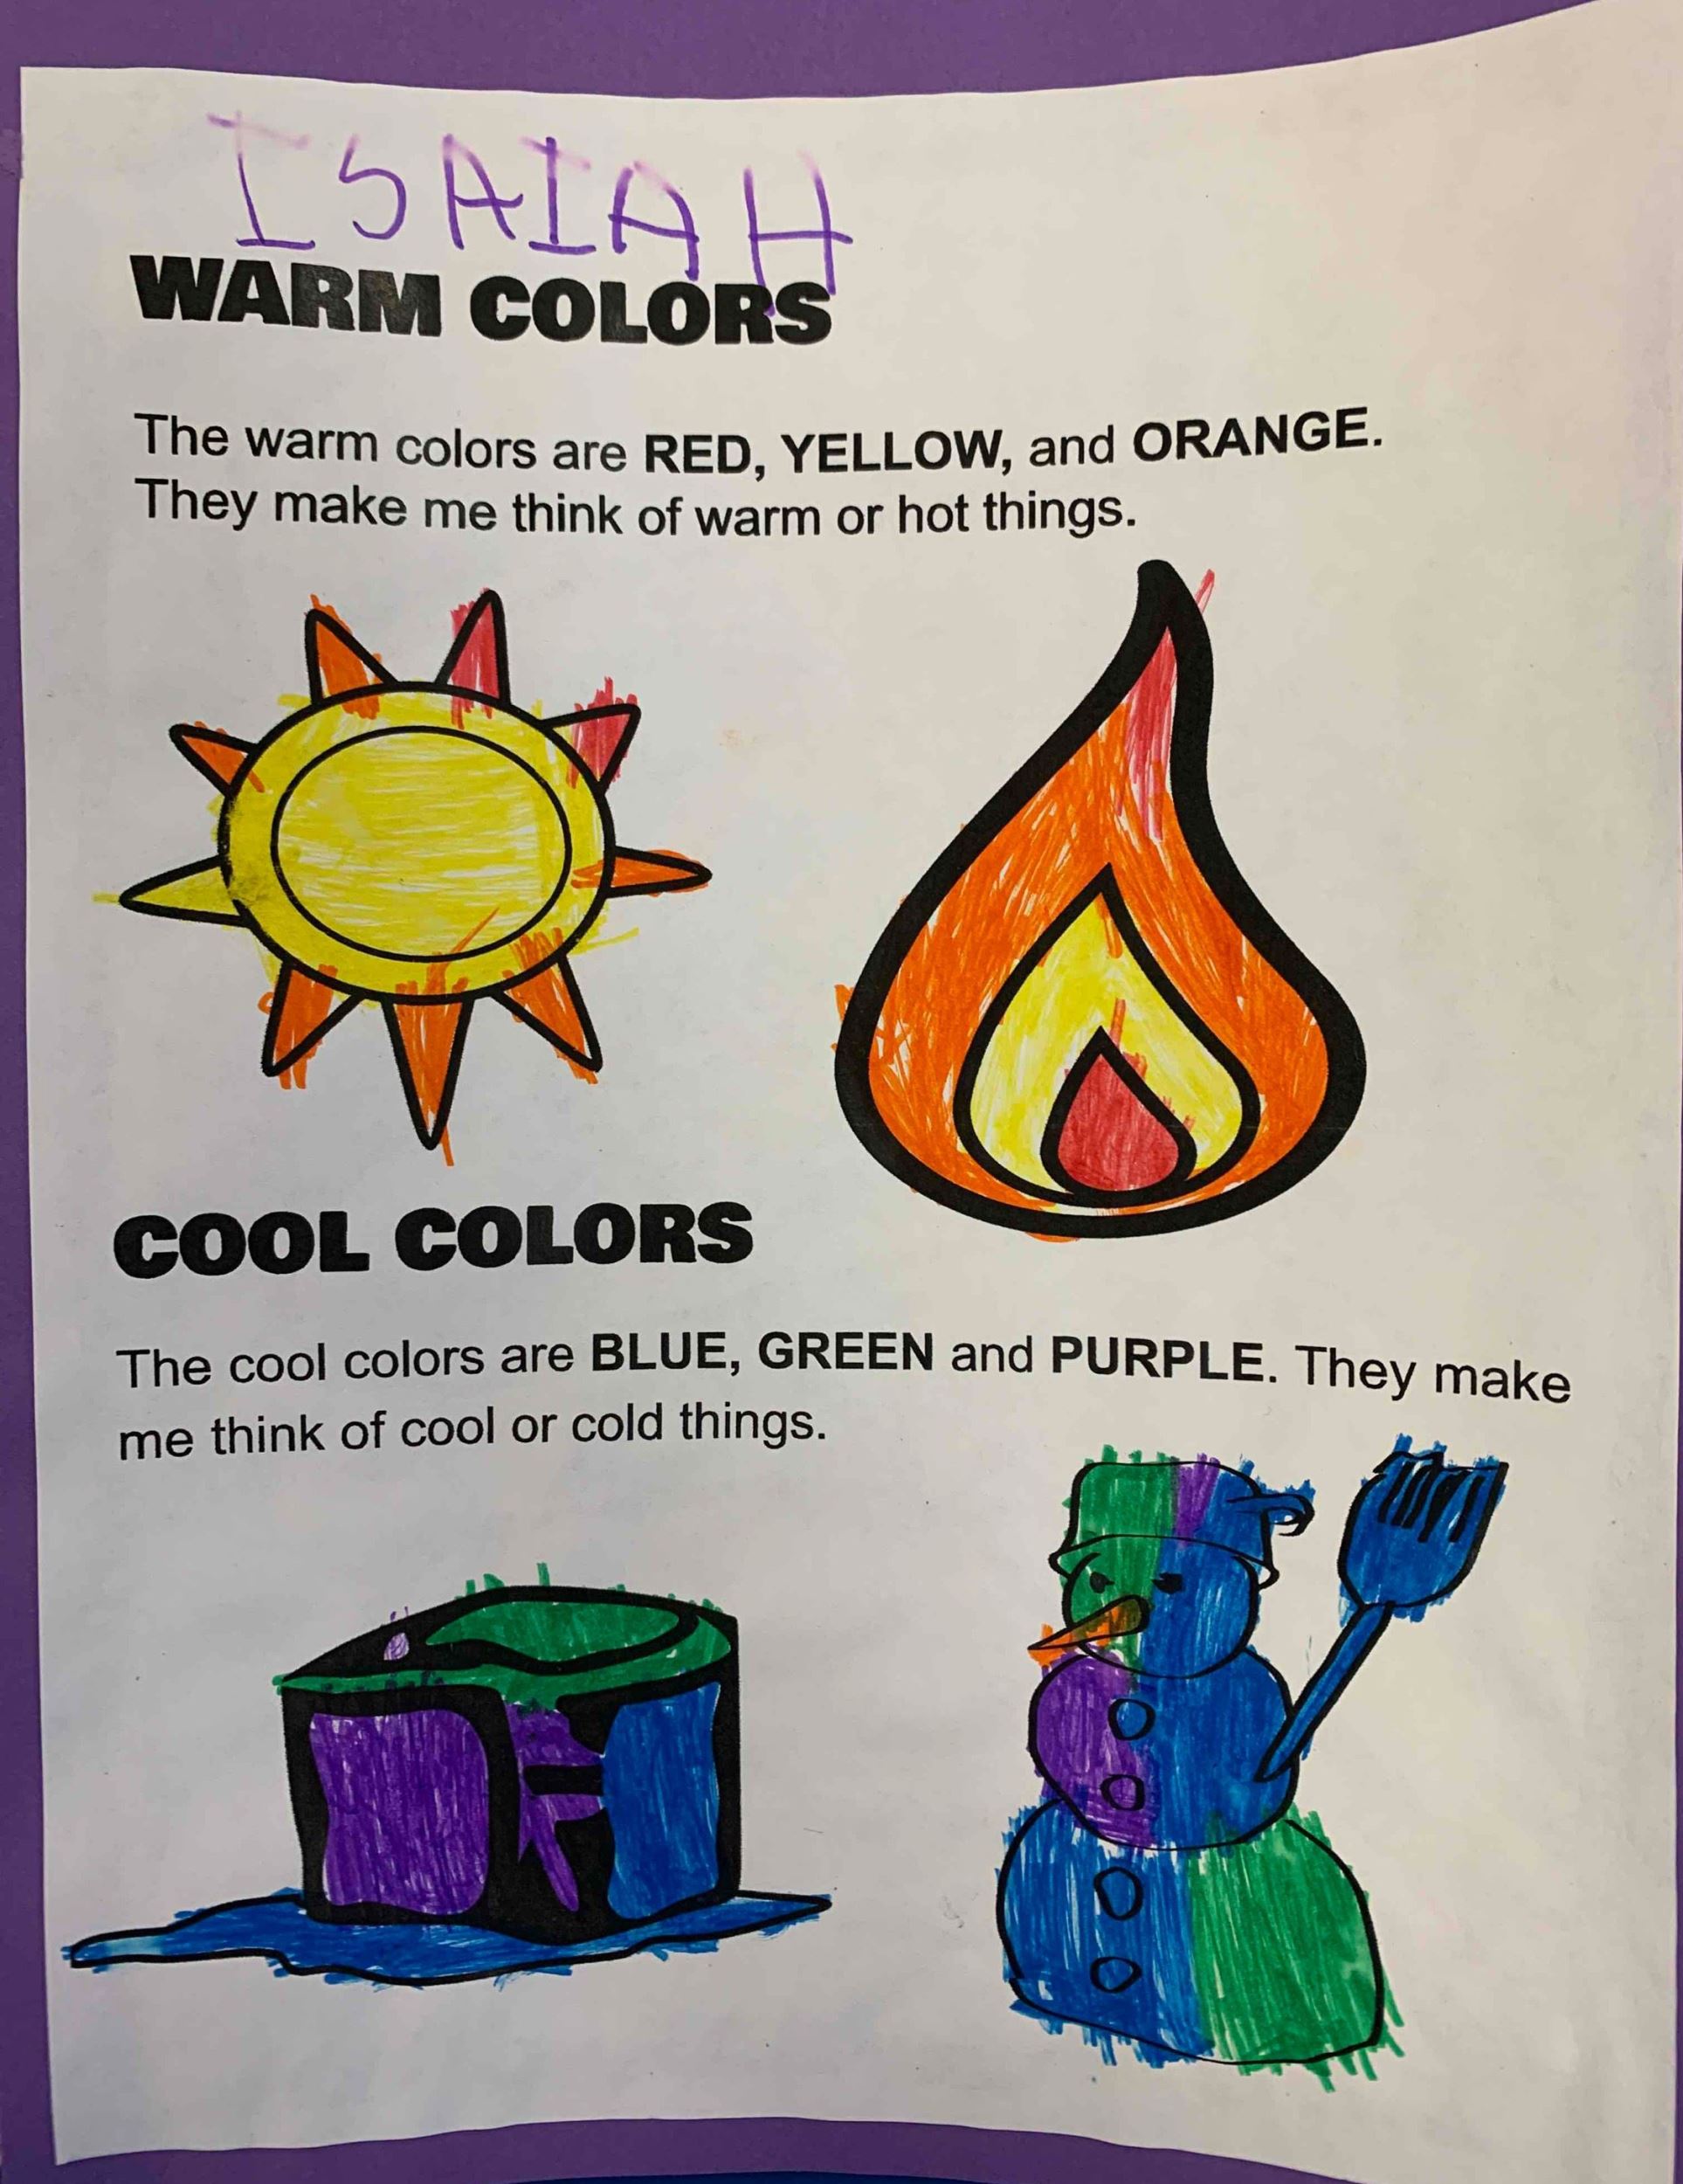 ISAIAH
WARM COLORS
The warm colors are RED, YELLOW, and ORANGE.
They make me think of warm or hot things.
COOL COLORS
The cool colors are BLUE, GREEN and PURPLE. They make
me think of cool or cold things.